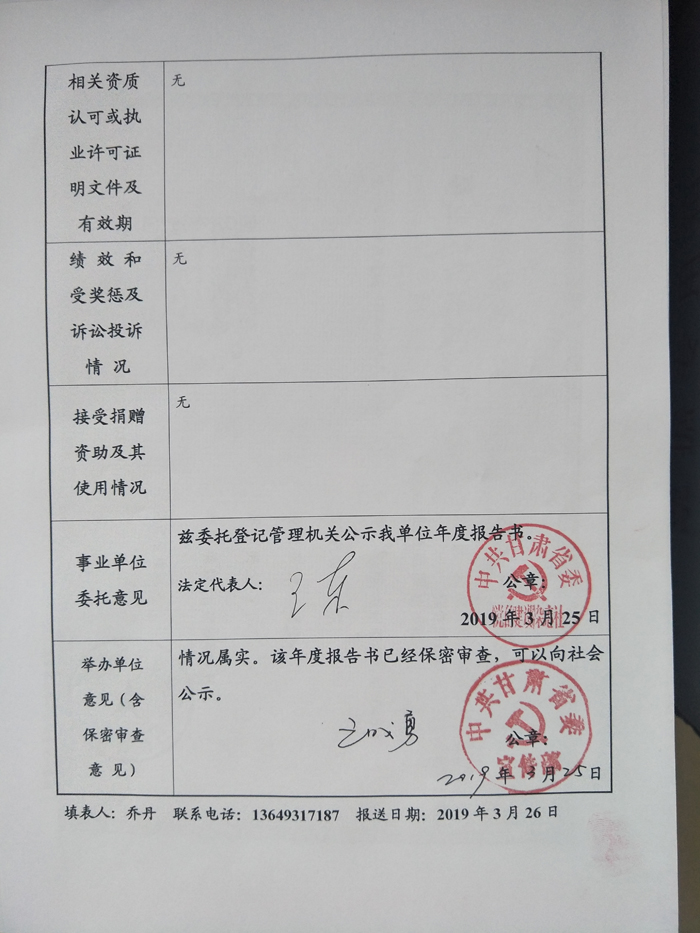 相关资质
认可或执
业许可证
明文件及
有效期
无
绩效和
受奖惩及
诉讼投诉
情况
无
接受捐赠
资助及其
使用情况
无
事业单位
委托意见
兹委托登记管理机关公示我单位年度报告书。
法定代表人：
王东
公章：
中共甘肃省委
2019 年 3 月 25 日
举办单位
意见（含
保密审查
意见）
情况属实。该年度报告书已经保密审查，可以向社会
公示。
公章：
中共甘肃省委
宣传部
2019 年 3 月 25 日
填表人：乔丹 联系电话：13649317187 报送日期：2019 年 3 月 26 日